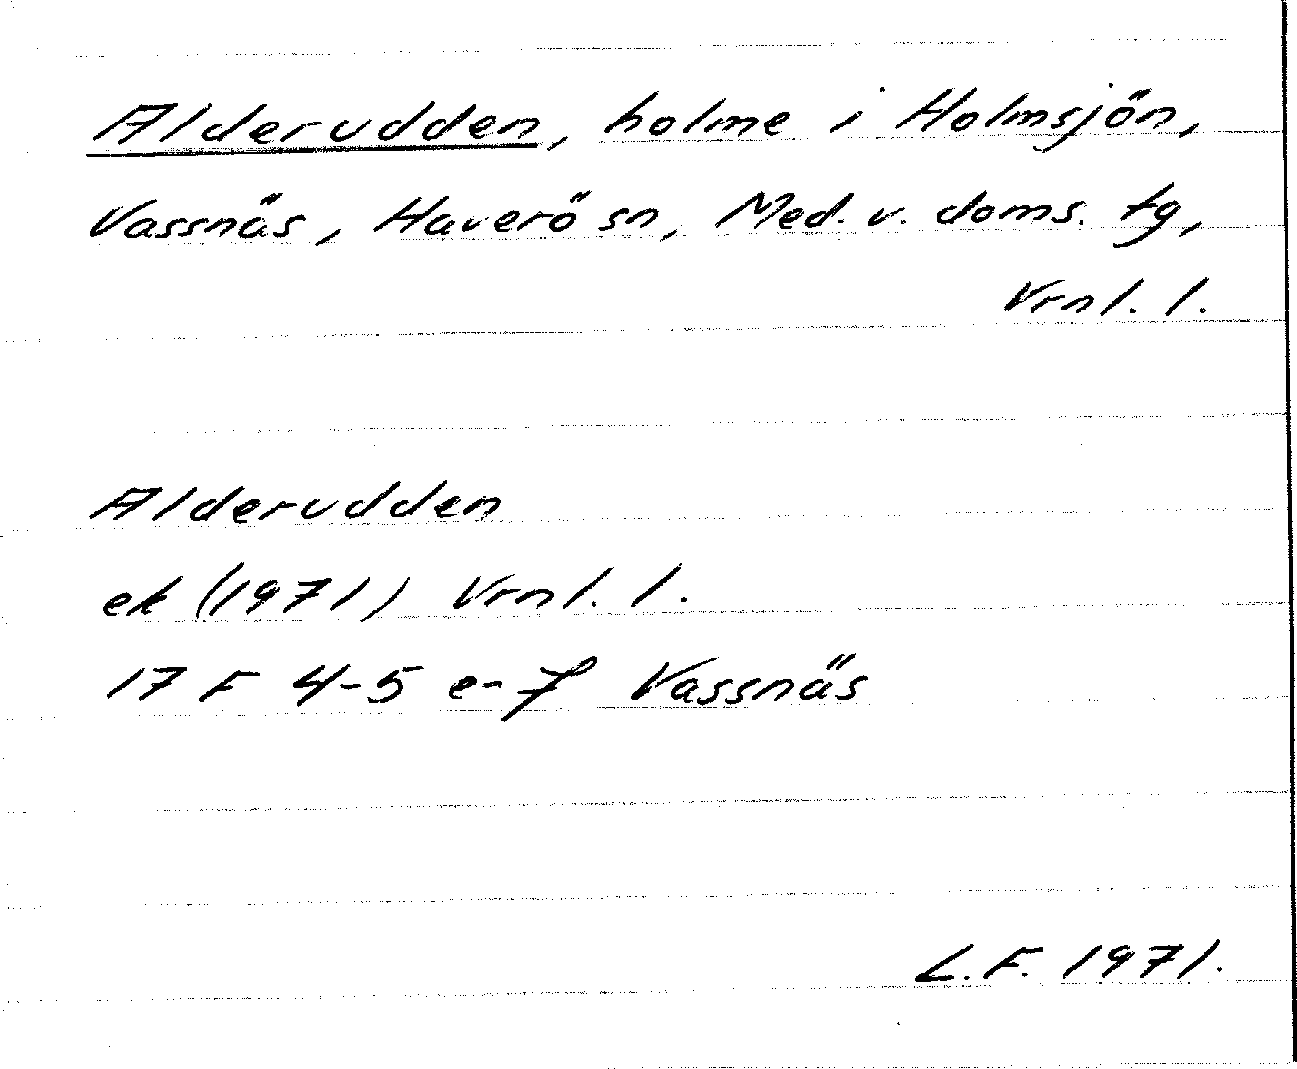 Alderudden, holme i Holmsjön,
Vassnäs, Haverö sn, Med. v. doms. tg,
Vrnl. l.
Alderudden
ek (1971) Vrnl. l.
17 F 4-5 e-f Vassnäs
L.F. 1971.